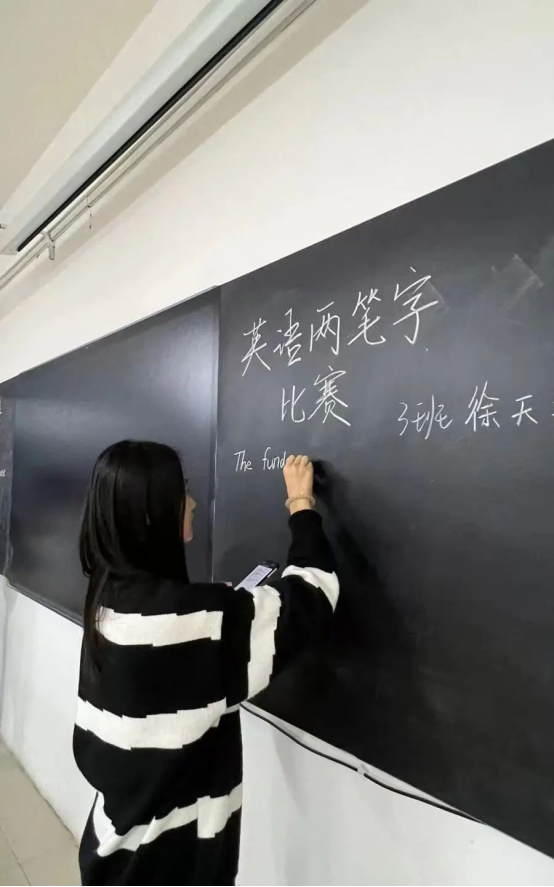 英语两笔字
比赛
3班 徐天
The fund